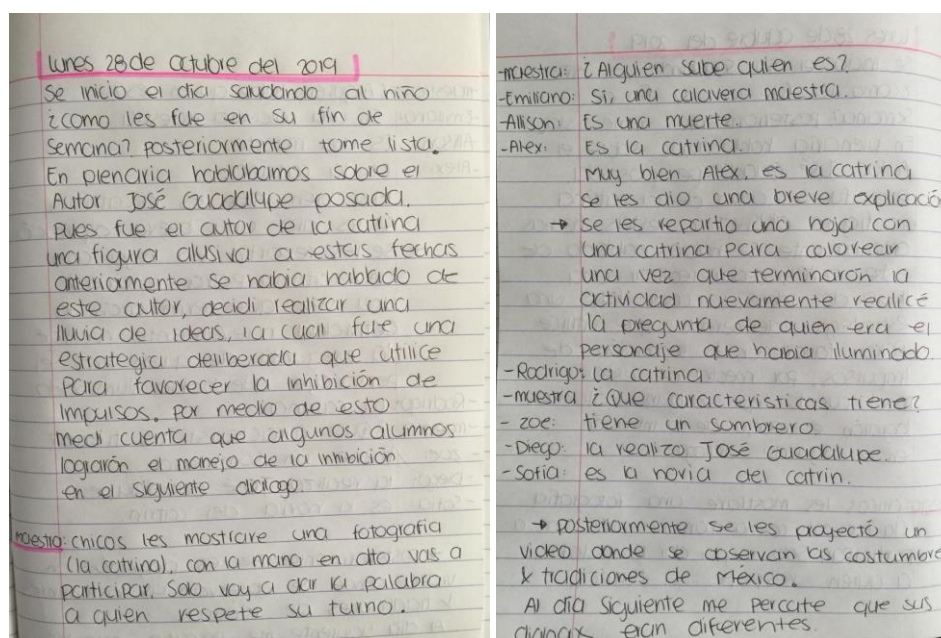 Lunes 28 de octubre del 2019
Se inicio el dia saludando al niño
¿como les fue en su fin de
semana? posteriormente tome lista.
En plenaria hablabamos sobre el
Autor José Guadalupe posada.
pues fue el autor de la catrina
una figura alusiva a estas fechas
anteriormente se habia hablado de
este autor, decidi realizar una
lluvia de ideas, la cual fue una
estrategia deliberada que utilice
para favorecer la inhibición de
impulsos, por medio de esto
me di cuenta que algunos alumnos
lograrón el manejo de la inhibición
en el siguiente dialogo.
maestra: chicos les mostrare una fotografia
(la catrina), con la mano en alto vas a
participar. Solo voy a dar la palabra
a quien respete su turno.
-maestra: ¿Alguien sabe quien es?
-Emiliano: Si, una calavera maestra.
-Allison: Es una muerte.
-Alex: Es la catrina.
Muy bien Alex, es la catrina
se les dio una breve explicació
→ se les repartio una hoja con
una catrina para colorear
una vez que terminarón la
actividad nuevamente realicé
la pregunta de quien era el
personaje que habia iluminado.
-Rodrigo: la catrina
-maestra ¿Que caracteristicas tiene?
- zoe: tiene un sombrero
-Diego: la realizo José Guadalupe.
-Sofia: es la novia del catrin.
→ posteriormente se les proyectó un
video donde se observan las costumbre
y tradiciones de México.
Al dia siguiente me percate que sus
eran diferentes.